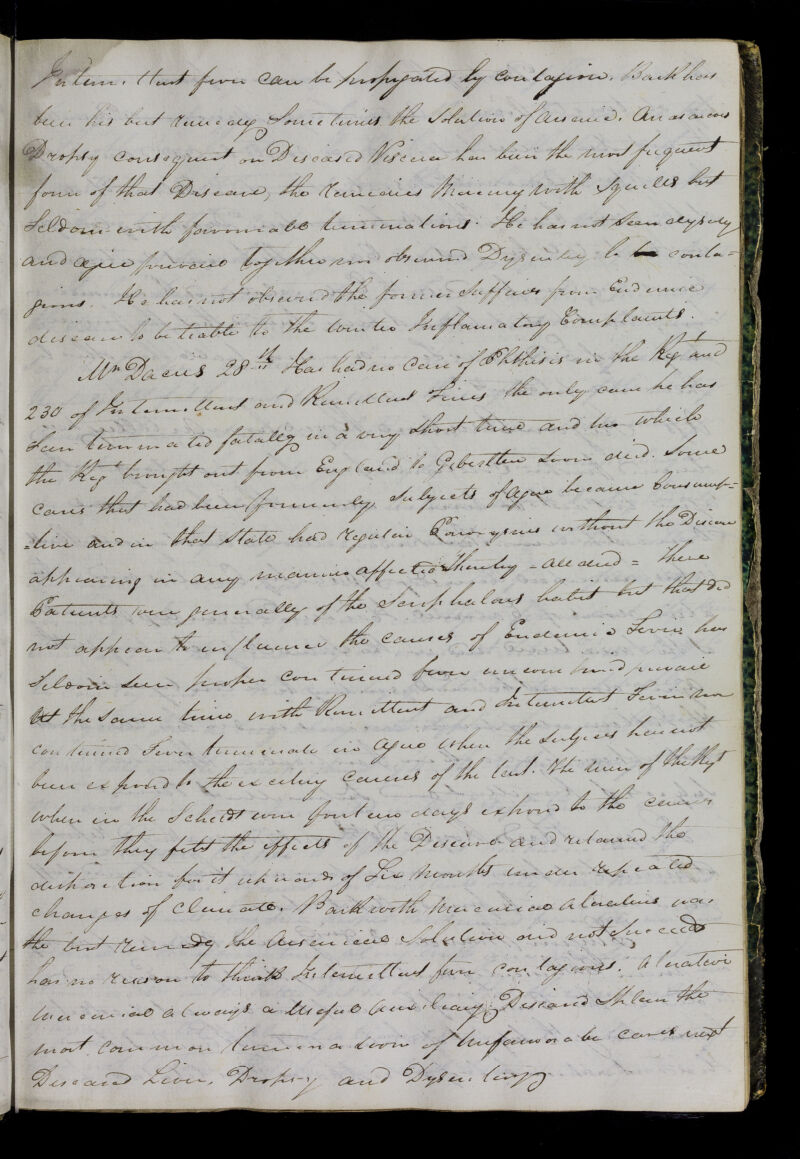 Interm.ittent fever can be propagated by contagion. Bark has
been his best remedy Sometimes the Solution of arsenic. Anasarcous
Dropsy consequent on Diseased Viscera has been the most frequent
form of that Disease, the remedies Mercury with Squills but
Seldom with favourable terminations. He has not seen dysentery
and ague prevail together nor observed Dysentery to be conta-
gious. He has not observed the former sufferers from Endemic
disease to be liable to the winter Inflamatory Complaints.
Mr Davies 28th Has had no Case of Phthisis in the Regt and
230 of Intermittent and Remittent Fevers the only case he has
Seen terminated fatally in a very short time and two which
the Regt brought out from England to Gibralter soon died. Some
cases that had been formerly subjects of ague became Consump=
=tive and in that state had regular Paroxysms without the Disease
appearing in any manner affected thereby - all died = These
Patients were generally of the Scrophulous habit but that did
not appear to influence the causes of Endemic Fever has
Seldom seen proper continued fever uncombined prevail
at the same time with Remittent and Intermittent Fevers nor
continued Fever terminate in ague when the subjects have not
been exposed to the exciting causes of the last. The men of the Regt
when in the Scheldt were fourteen days exposed to the causes
before they felt the effects of the Disease and retained the
disposition for it upwards of Six Months under repeated
changes of climate. Bark with Mercurial alteratives was
the best remedy the Arsenical Solution did not succeed
has no reason to think Intermittent fever contagious. alterative
mercurial always a useful auxiliary. Diseased Spleen the
most common termination of unfavourable cases next
Diseased Liver, Dropsy and Dysentery